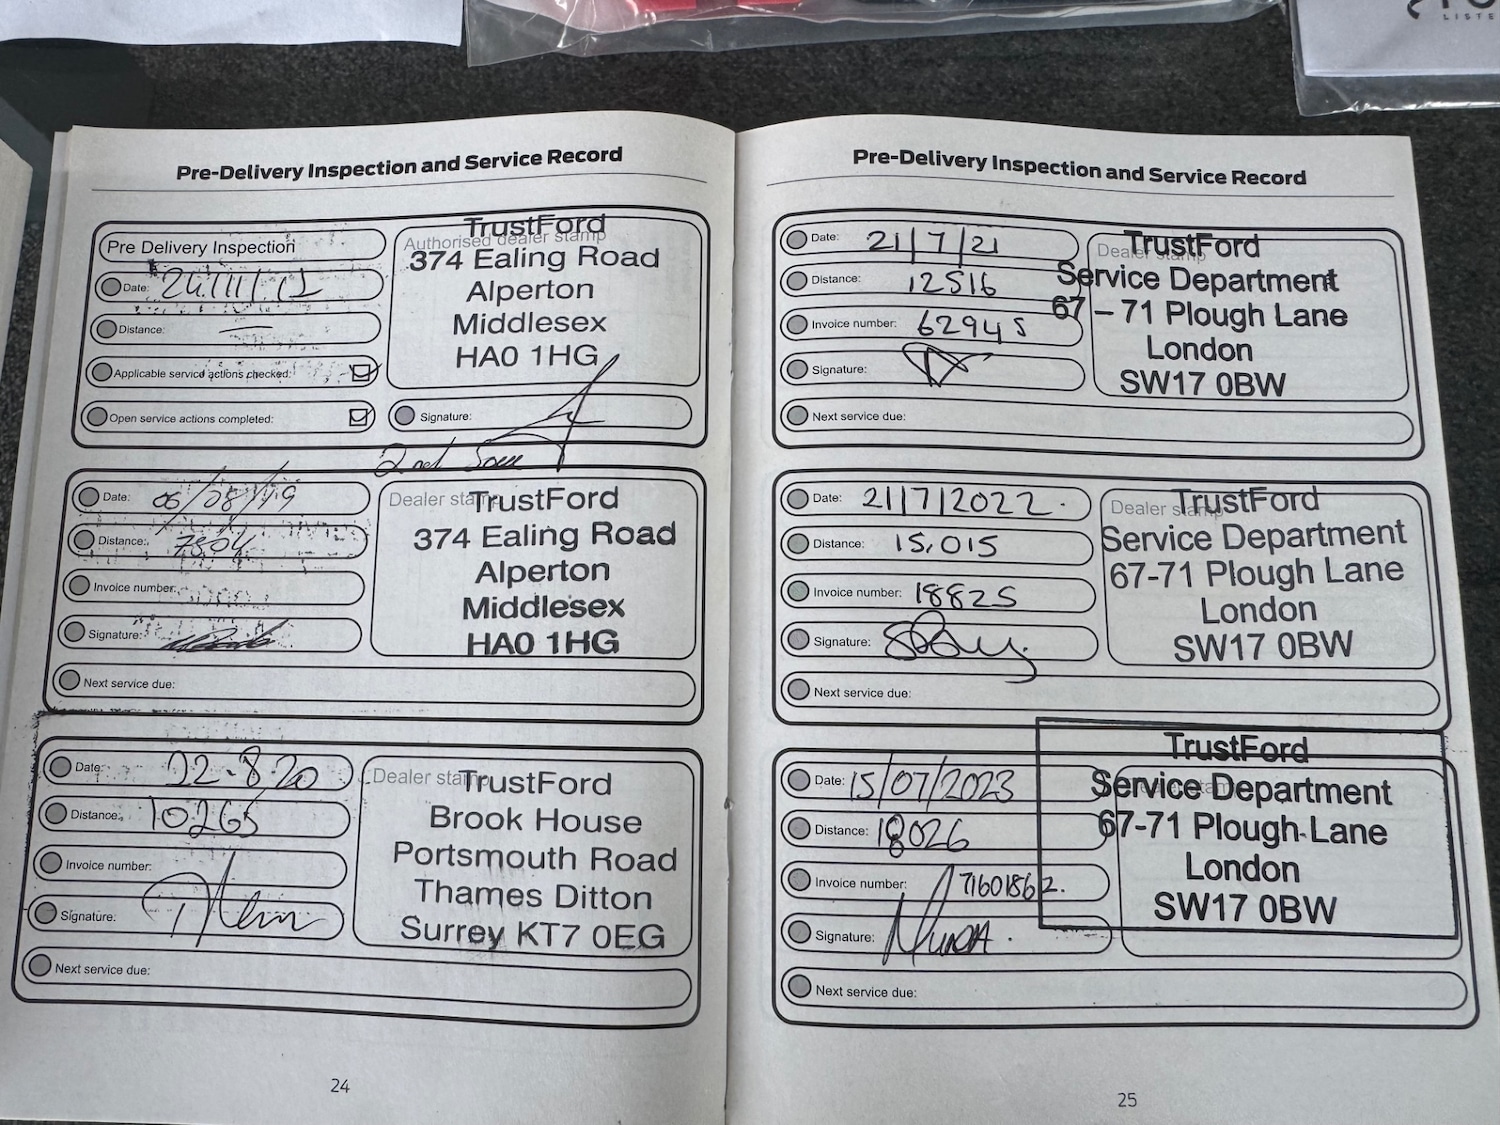 LISTE
Pre-Delivery Inspection and Service Record
Pre Delivery Inspection
Date:
Distance: —
Applicable service actions checked:
Open service actions completed:
Authorised dealer stamp
TrustFord
374 Ealing Road
Alperton
Middlesex
HA0 1HG
Signature:
2nd
Date: 06/08/19
Distance: 7504
Invoice number:
Signature:
Next service due:
Dealer stamp
TrustFord
374 Ealing Road
Alperton
Middlesex
HA0 1HG
Date: 12.8.20
Distance: 10265
Invoice number:
Signature:
Next service due:
Dealer stamp
TrustFord
Brook House
Portsmouth Road
Thames Ditton
Surrey KT7 0EG
24
Pre-Delivery Inspection and Service Record
Date: 21/7/21
Distance: 12516
Invoice number: 62945
Signature:
Next service due:
Dealer stamp
TrustFord
Service Department
67 – 71 Plough Lane
London
SW17 0BW
Date: 21/7/2022.
Distance: 15,015
Invoice number: 18825
Signature:
Next service due:
Dealer stamp
TrustFord
Service Department
67-71 Plough Lane
London
SW17 0BW
Date: 15/07/2023
Distance: 18026
Invoice number: 71601862.
Signature:
Next service due:
TrustFord
Service Department
67-71 Plough Lane
London
SW17 0BW
25